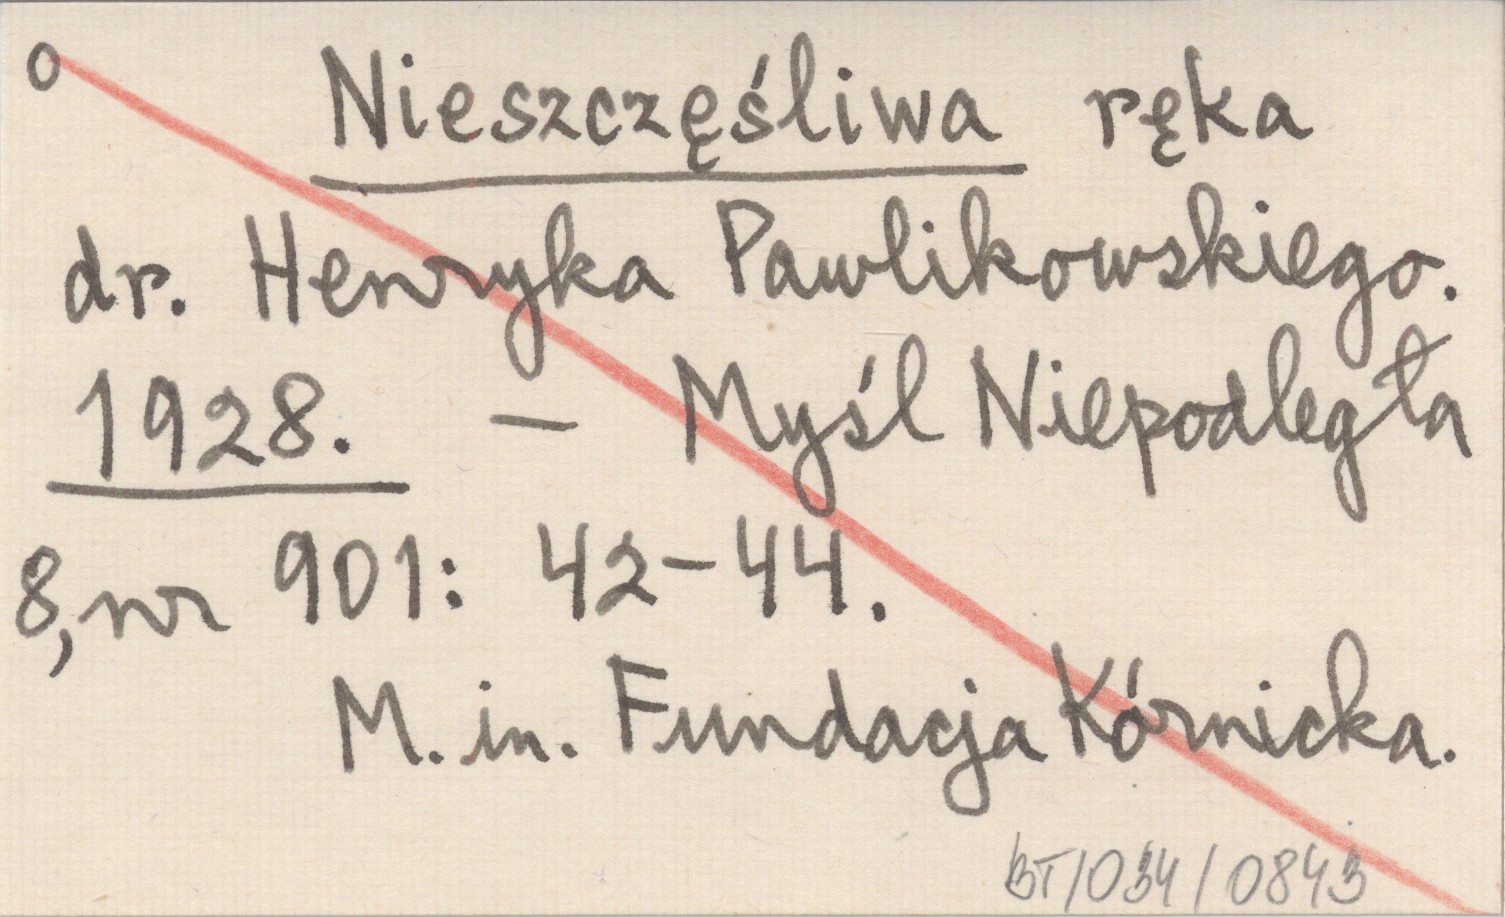 o Nieszczęśliwa ręka
dr. Henryka Pawlikowskiego.
1928. — Myśl Niepodległa
8, nr 901: 42-44.
M. in. Fundacja Kórnicka.
BT/034/0843